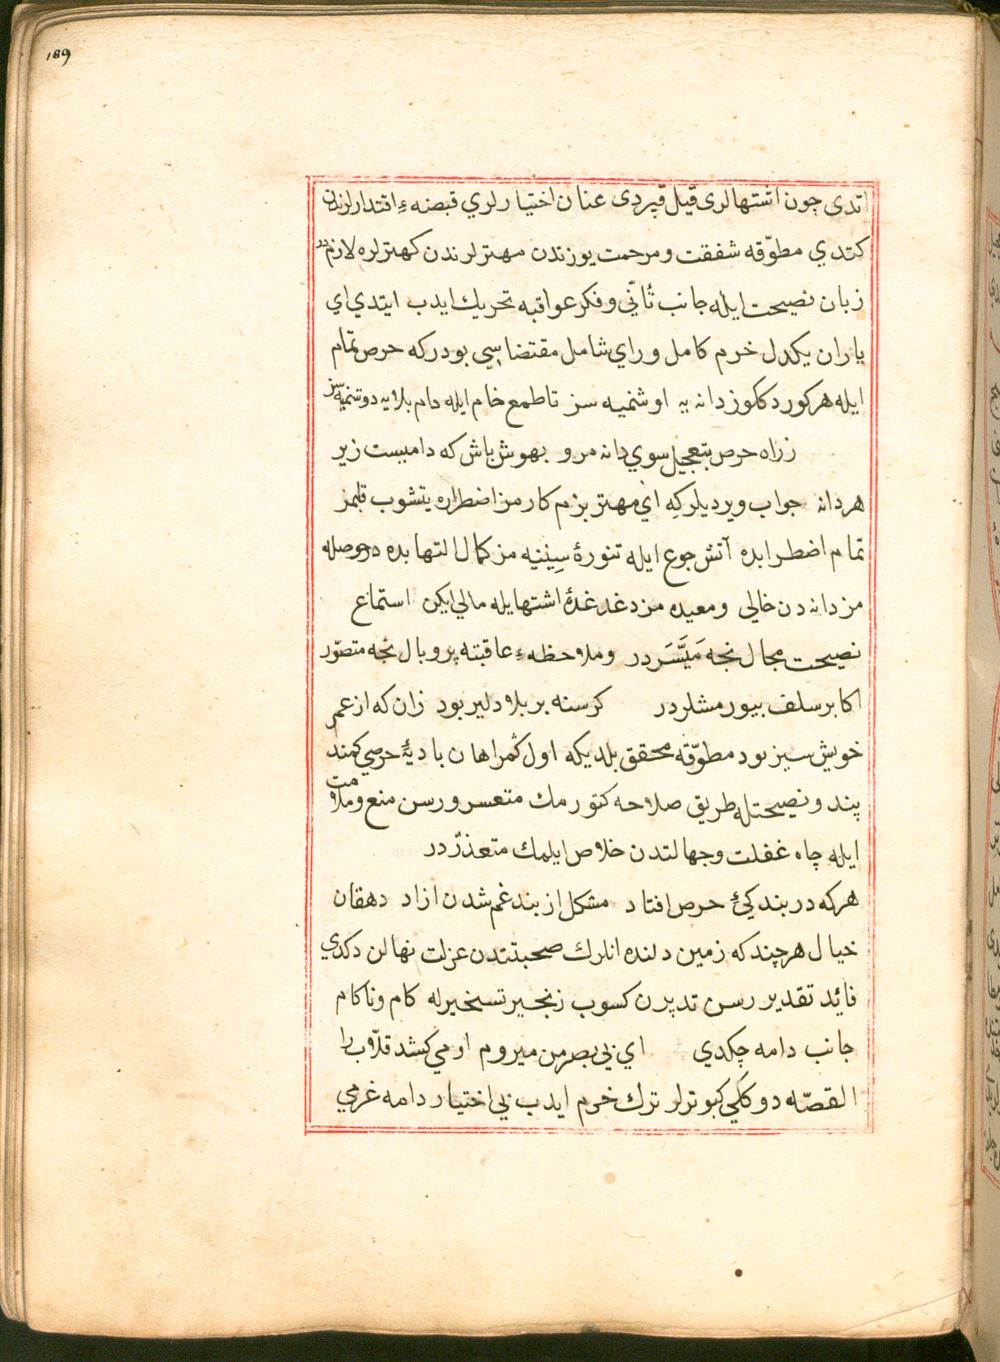 189
اتدی چون اشتهالری قیل قپردی عنان اختیارلري قبضهٔ اقتدارلرندن
کتدي مطوّقه شفقت ومرحمت یوزندن مهترلرندن کهترلره لازمدر
زبان نصیحت ایله جانب تأنّی وفکر عواقبه تحریك ایدب ایتدي اي
یاران یکدل خرم کامل وراي شامل مقتضاسي بودرکه حرص تمام
ایله هر کوردککوز دانه یه اوشنمیه سز تا طمع خام ایله دام بلایه دوشنمیه سز
زراه حرص بتعجیل سوي دانه مرو بهوش باش که دامیست زیر
هر دانه جواب ویردیلرکه اي مهتر بزم کارمز اضطراره یتشوب قلبمز
تمام اضطرابده آتش جوع ایله تنورهٔ سینیه مز کمال التهابده در حوصله
مز دانه دن خالی ومعده مز دغدغهٔ اشتها یله مالي ایکن استماع
نصیحت مجال نجه مَیَسَّردر وملاحظهٔ عاقبته پروبال نجه متصوّر
اکابر سلف بیورمشلردر کرسنه بر بلا دلیر بود زان که از عمر
خویش سیر بود مطوّقه محقق بلدیکه اول کمراهان بادیهٔ حرصي کمند
پند ونصیحتله طریق صلاحه کتورمك متعسر ورسن منع وملامت
ایله چاه غفلت وجهالتدن خلاص ایلمك متعذّردر
هرکه در بند کئ حرص افتاد مشکل از بند غم شدن ازاد دهقان
خیال هرچندکه زمین دلنده انلرك صحبتندن عزلت نهالن دکدي
قائد تقدیر رسن تدبیرن کسوب زنجیر تسخیرله کام وناکام
جانب دامه چکدي اي بی بصر من میروم او می کشد قلّاب را
القصّه دوککلي کبوترلر ترك خرم ایدب بی اختیار دامه غرمي